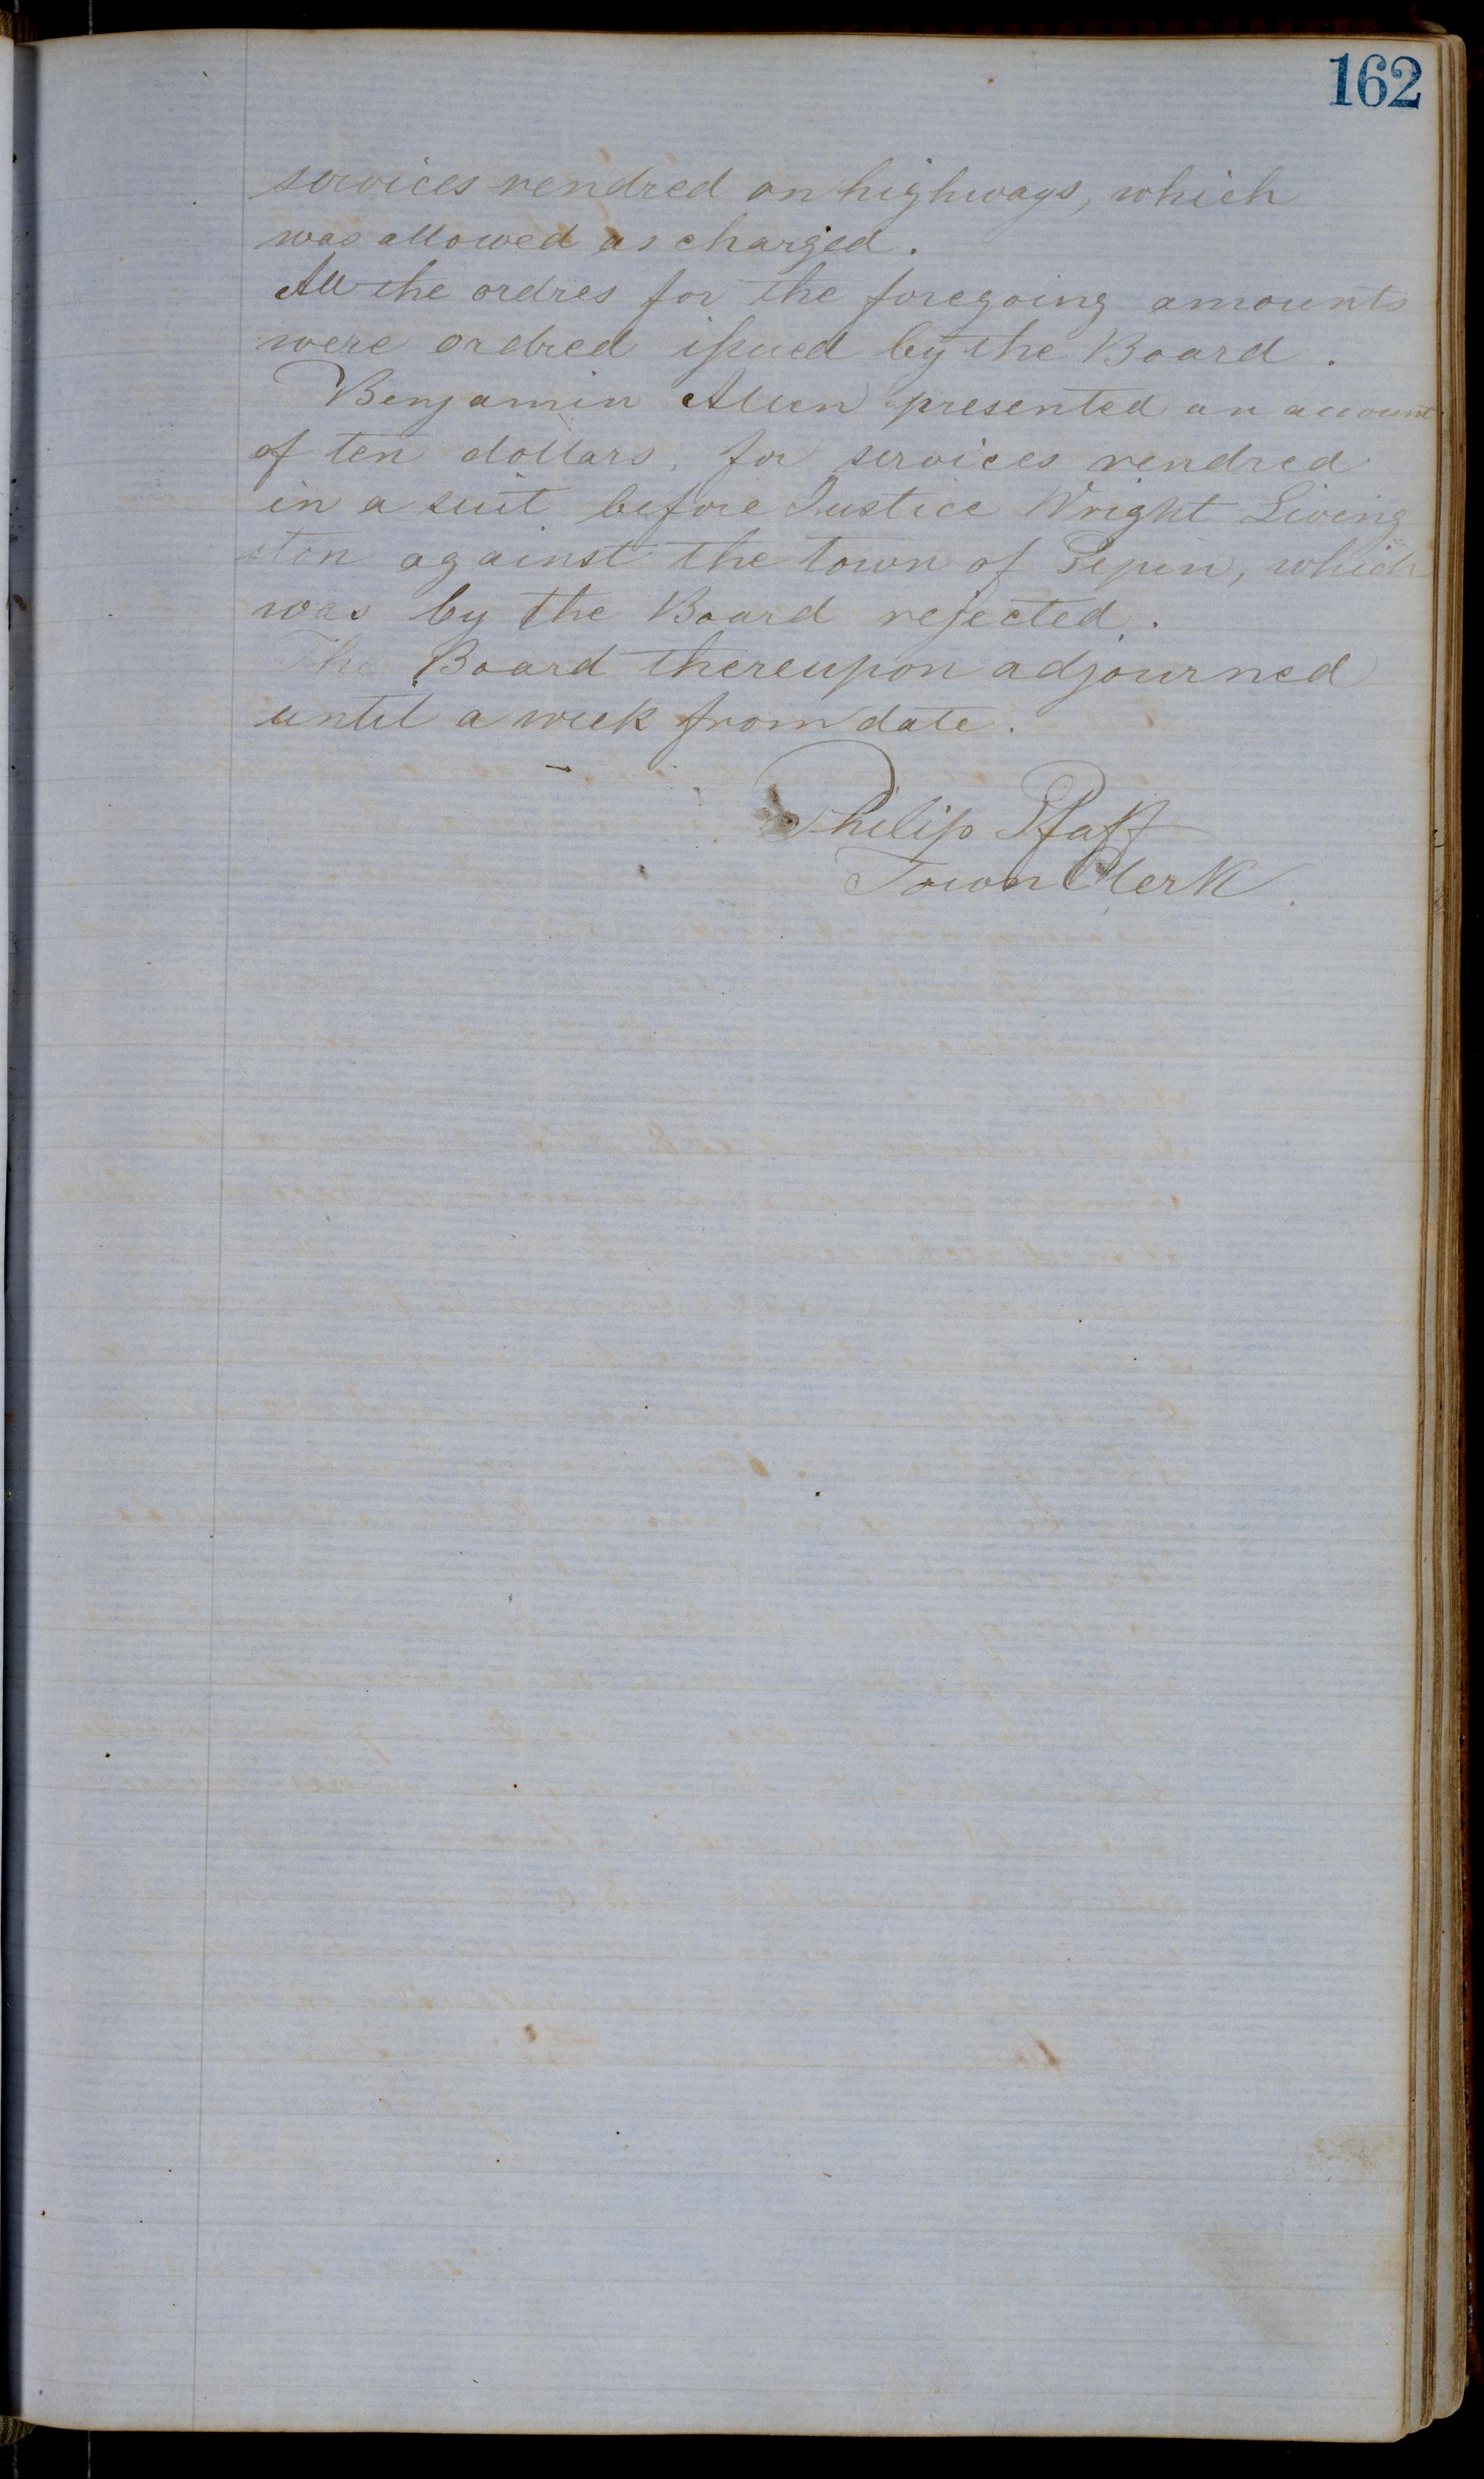 162
services rendred on highways, which
was allowed as charged.
All the ordres for the foregoing amounts
were ordred issued by the Board.
Benjamin Allen presented an account
of ten dollars, for services rendred
in a suit before Justice Wright Living
ston against the town of Pepin, which
was by the Board rejected.
The Board thereupon adjourned
until a week from date.
Philip Pfaff
Town Clerk.